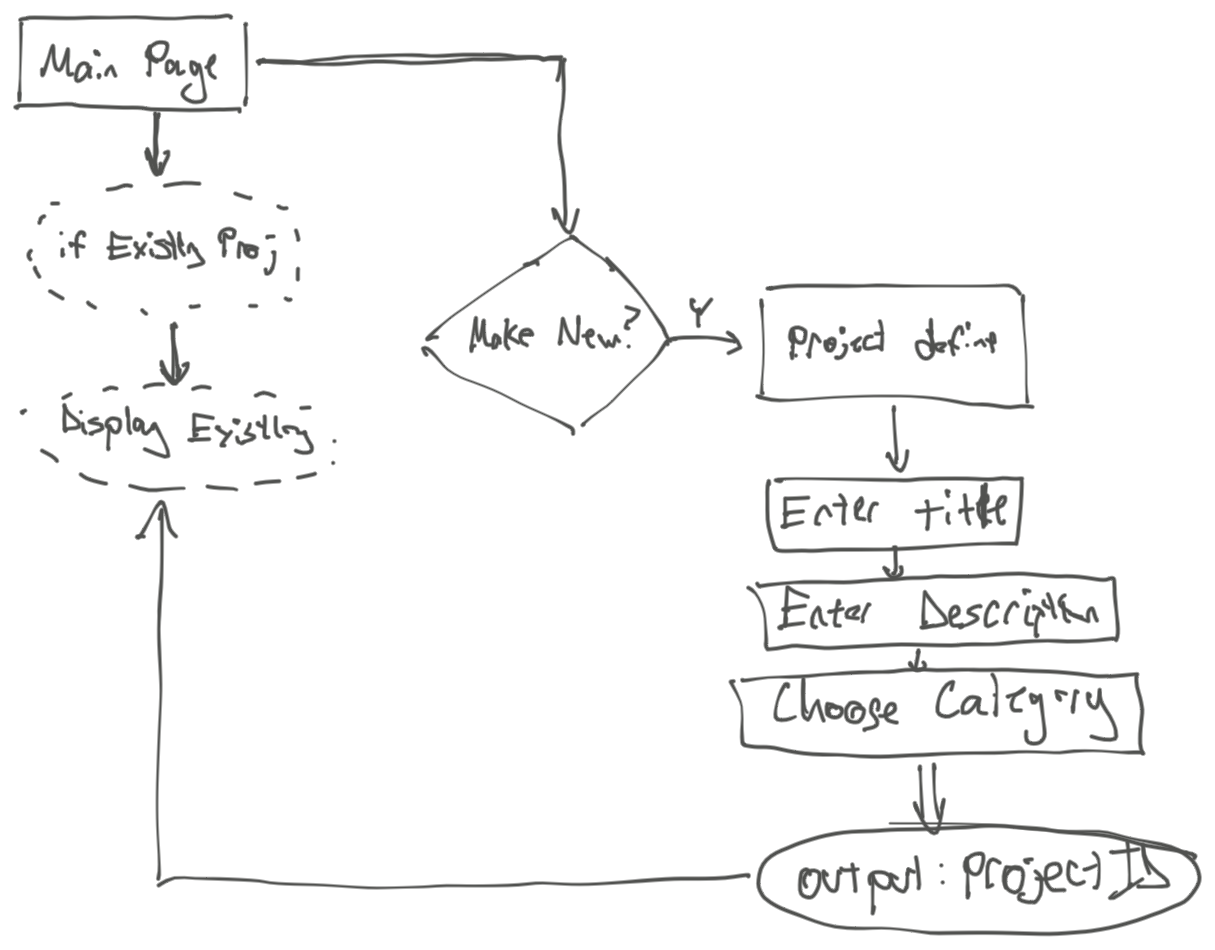 Main Page
if Existing Proj
Display Existing
Make New?
Y
Project define
Enter title
Enter Description
Choose Category
output: Project ID